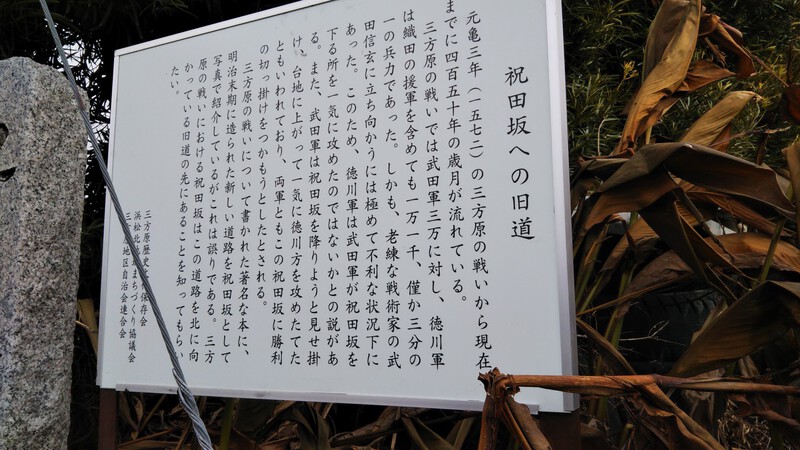 祝田坂への旧道
元亀三年（一五七二）の三方原の戦いから現在
までに四百五十年の歳月が流れている。
三方原の戦いでは武田軍三万に対し、徳川軍
は織田の援軍を含めても一万一千、僅か三分の
一の兵力であった。しかも、老練な戦術家の武
田信玄に立ち向かうには極めて不利な状況下に
あった。このため、徳川軍は武田軍が祝田坂を
下る所を一気に攻めたのではないかとの説があ
る。また、武田軍は祝田坂を降りようと見せ掛
け、台地に上がって一気に徳川方を攻めたてた
ともいわれており、両軍ともこの祝田坂に勝利
の切っ掛けをつかもうとしたとされる。
三方原の戦いについて書かれた著名な本に、
明治末期に造られた新しい道路を祝田坂として
写真で紹介しているがこれは誤りである。三方
原の戦いにおける祝田坂はこの道路を北に向
かっている旧道の先にあることを知ってもらい
たい。
三方原歴史保存会
浜松北まちづくり協議会
三方地区自治会連合会